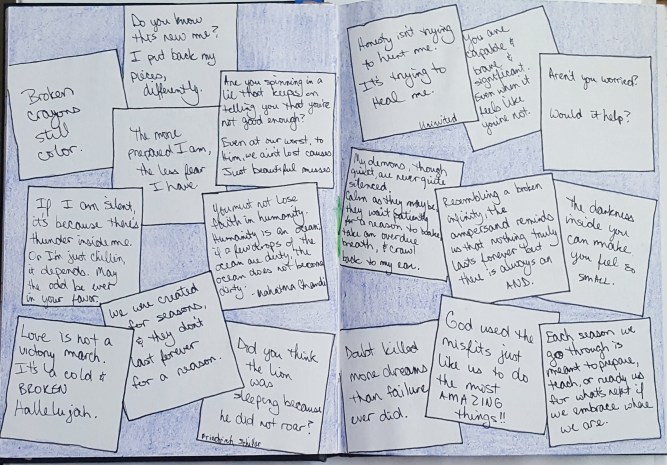 Do you know
this new me?
I put back my
pieces,
differently.
Broken
crayons
still
color.
Are you spinning in a
lie that keeps on
telling you that you're
not good enough?
Even at our worst, to
him, we ain't lost causes.
Just beautiful messes
The more
prepared I am,
the less fear
I have.
If I am silent,
it's because there's
thunder inside me.
Or I'm just chillin,
it depends. May
the odd be ever
in your favor.
You must not lose
faith in humanity.
Humanity is an ocean;
if a few drops of the
ocean are dirty, the
ocean does not become
dirty.
- Mahatma Ghandi
We were created
for seasons,
& they don't
last forever
for a reason.
Love is not a
victory march.
It's a cold &
BROKEN
Hallelujah.
Did you think
the lion
was
sleeping because
he did not roar?
Friedrich Schiller
Honesty isn't trying
to hurt me.
It's trying to
Heal me.
Uninvited
You are
capable &
brave &
significant.
Even when it
feels like
you're not.
Aren't you worried?
Would it help?
My demons, though
quiet, are never quite
silenced.
Calm as they may be,
they wait patiently
for a reason to wake,
take an overdue
breath, & crawl
back to my ear.
Resembling a broken
infinity, the
ampersand reminds
us that nothing truly
lasts forever but
there is always an
AND.
The darkness
inside you
can make
you feel so
SMALL.
Doubt killed
more dreams
than failure
ever did.
God used the
misfits just
like us to do
the most
AMAZING
things!!
Each season we
go through is
meant to prepare,
teach, or ready us
for what's next if
we embrace where
we are.